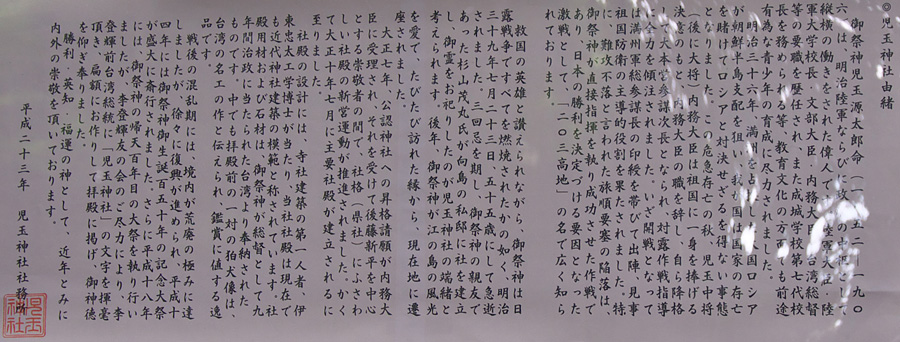 ◎児玉神社由緒
御祭神児玉源太郎命(一八五二―一九〇
六)は、明治陸軍ならびに政
縦横の働きをされた偉人で、陸軍大将・陸
軍大学校長・文部大臣・内務大臣・台湾総督
等の要職を歴任され、また成城学校第七代校
長を務められる等、教育文化の方面でも前途
有為な青少年の育成に尽力されました。
明治三十六年、満洲を占
が朝鮮半島支配を狙い
を賭けてロシアと対決せざるを得ない事態
となりました。この危急存亡の秋、児玉中将
(後に大将)内務大臣は祖国に一身を捧げる
決意をもって、内務大臣の職を辞し、自ら降格
し日本大本営参謀次長となられ、対露作戦指導
に全力を傾注されました。いざ、開戦となって
は満洲軍総参謀長の印綬を帯びて出陣、見事
祖国防衛の主導的役割を果たされました。特
に難攻不落と言われた旅順要塞の陥落は、
御祭神が直接指揮を執り成功させた作戦で
あり、日本の勝利を決定づける要因となった
激戦として、「二〇三高地」の名で広く知ら
れております。
救国の英雄と讃えられながら、御祭神は日
露戦争ですべてを燃焼されたかの如く、明治
三十九年七月二十三日、五十五歳にして急逝
されました。三回忌を期し、御祭神の親友で
あった杉山茂丸氏が向島の私邸に社を建立
し、御霊をお祀りしたのが児玉神社の端緒と
考えられます。その後、御祭神が江の島の風光
を愛で、たびたび訪れた縁から、現在地に遷
座されました。
大正七年、公認神社への昇格請願が内務大
臣に受理され、それを受けて後藤新平を中心
とする崇敬者の間で、社格(県社)にふさわ
しい社殿の新営運動が推進されました。かく
て大正十年七月に主要社殿が建立されるに
至りました。
社殿の設計には、寺社建築の第一人者、伊
東忠太工学博士が当たり、当社社殿は現在で
も近代神社建築の模範と称されています。社
殿用材および石材は、御祭神が総督として九
年間治政に当たられた台湾より奉納された
もので、中でも拝殿前の一対の狛犬像は、
台湾の名工の作と伝えられ、鑑賞に値する逸
品です。
戦後の混乱期には、境内が荒廃の極みに達
しましたが、徐々に復興が進められ、平成十
四年には御祭神御生誕百五十年の記念大祭
が盛大に斎行されました。さらに平成十八年
には、御祭神の帰天百年目の大祭を執り行い
ましたが、李登輝友の会のご尽力により、李
登輝前台湾総統に「児玉神社」の文字を揮毫
頂き、扁額にお作りして拝殿に掲げ、御神徳
を仰ぎ奉りました。
勝利・英知・福運の神として、近年とみに
内外の崇敬を頂いております。
平成二十三年 児玉神社社務所
児玉
神社